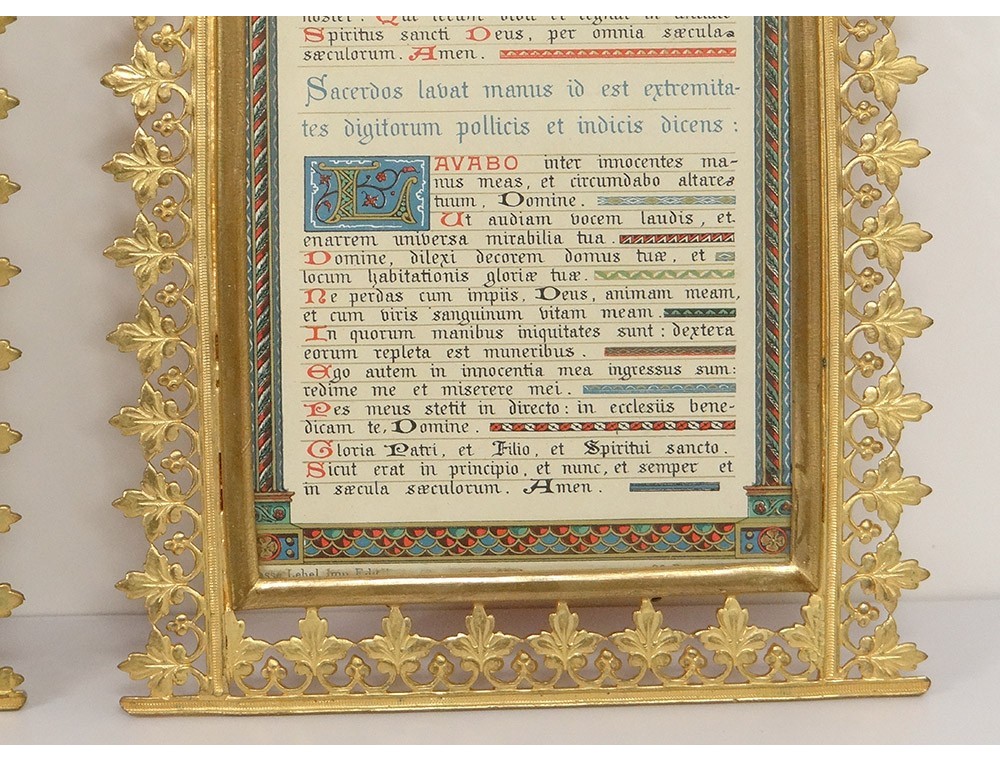 noster : Qui tecum vivit et regnat in unitate
Spiritus sancti Deus, per omnia sæcula
sæculorum. Amen.
Sacerdos lavat manus id est extremita-
tes digitorum pollicis et indicis dicens :
LAVABO inter innocentes ma-
nus meas, et circumdabo altare
tuum, Domine.
Ut audiam vocem laudis, et
enarrem universa mirabilia tua.
Domine, dilexi decorem domus tuæ, et
locum habitationis gloriæ tuæ.
Ne perdas cum impiis, Deus, animam meam,
et cum viris sanguinum vitam meam.
In quorum manibus iniquitates sunt : dextera
eorum repleta est muneribus.
Ego autem in innocentia mea ingressus sum :
redime me et miserere mei.
Pes meus stetit in directo : in ecclesiis bene-
dicam te, Domine.
Gloria Patri, et Filio, et Spiritui sancto.
Sicut erat in principio, et nunc, et semper et
in sæcula sæculorum. Amen.
Lebel, Imp. Edit